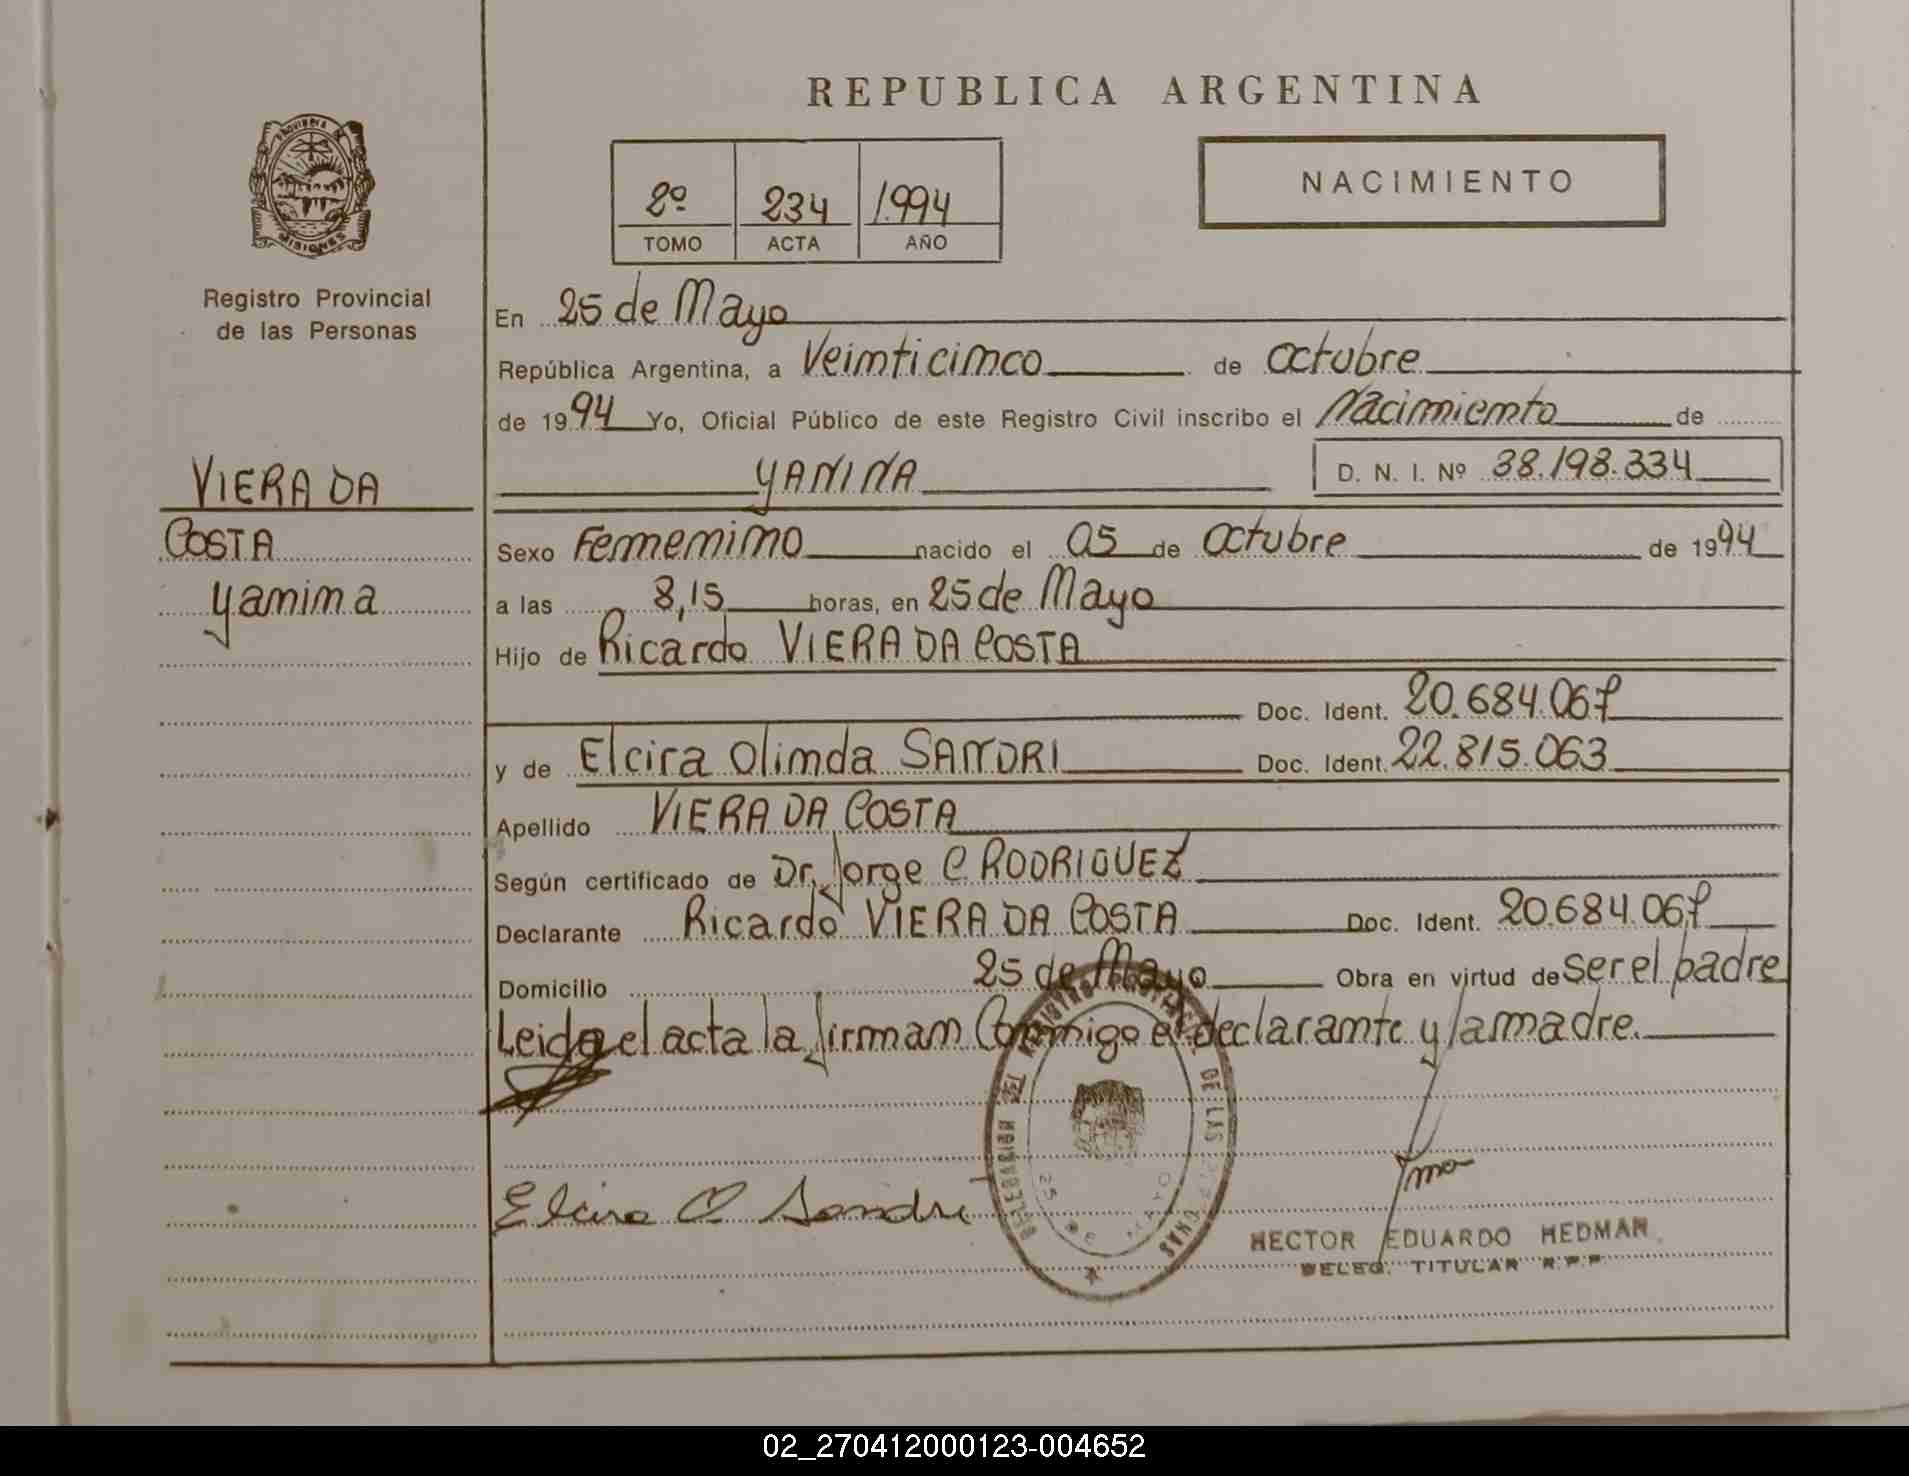 REPUBLICA ARGENTINA
PROVINCIA DE
MISIONES
Registro Provincial
de las Personas
2º 234 1.994
TOMO ACTA AÑO
NACIMIENTO
En 25 de Mayo
República Argentina, a Veinticinco de octubre
de 1994 Yo, Oficial Público de este Registro Civil inscribo el Nacimiento de
VIERA DA
COSTA
Yanina
YANINA D. N. I. Nº 38.198.334
Sexo Femenino nacido el 05 de octubre de 1994
a las 8,15 horas, en 25 de Mayo
Hijo de Ricardo VIERA DA COSTA
Doc. Ident. 20.684.067
y de Elcira Olinda SANDRI Doc. Ident. 22.815.063
Apellido VIERA DA COSTA
Según certificado de Dr. Jorge C RODRIGUEZ
Declarante Ricardo VIERA DA COSTA Doc. Ident. 20.684.067
Domicilio 25 de Mayo Obra en virtud de ser el padre
Leida el acta la firman Conmigo el declarante y la madre.
DELEGACION DEL REGISTRO PROVINCIAL DE LAS PERSONAS
25 DE MAYO
Elcira O Sandri
HECTOR EDUARDO HEDMAN
DELEG. TITULAR R.P.P.
02_270412000123-004652